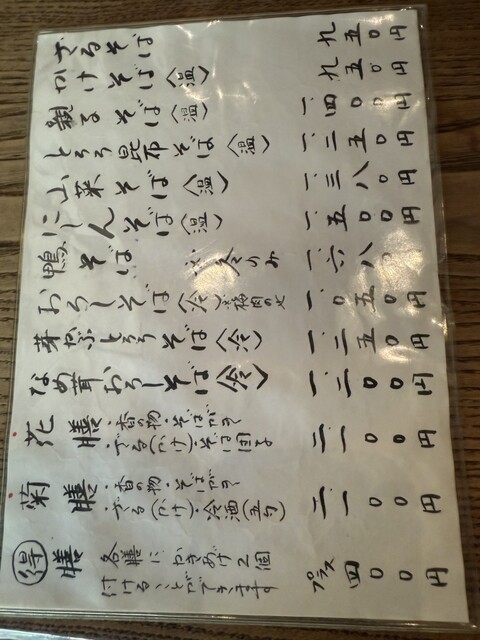 ざるそば 九五〇円
かけそば〈温〉 九五〇円
親子そば〈温〉 一、四〇〇円
とろろ昆布そば〈温〉 一、二五〇円
山菜そば〈温〉 一、三八〇円
にしんそば〈温〉 一、五〇〇円
鴨そば 冬のみ 一、六八
おろしそば〈冷〉梅肉のせ 一、〇五〇円
芽かぶとろろそば〈冷〉 一、二五〇円
なめ茸おろしそば〈冷〉 一、二〇〇円
花膳 ・香の物・そばがき
・ざる(かけ)・そば団子 二一〇〇円
菊膳 ・香の物・そばがき
・ざる(かけ)・冷酒(五勺) 二一〇〇円
得膳 各膳にかきあげ2個
付けることができます プラス四〇〇円